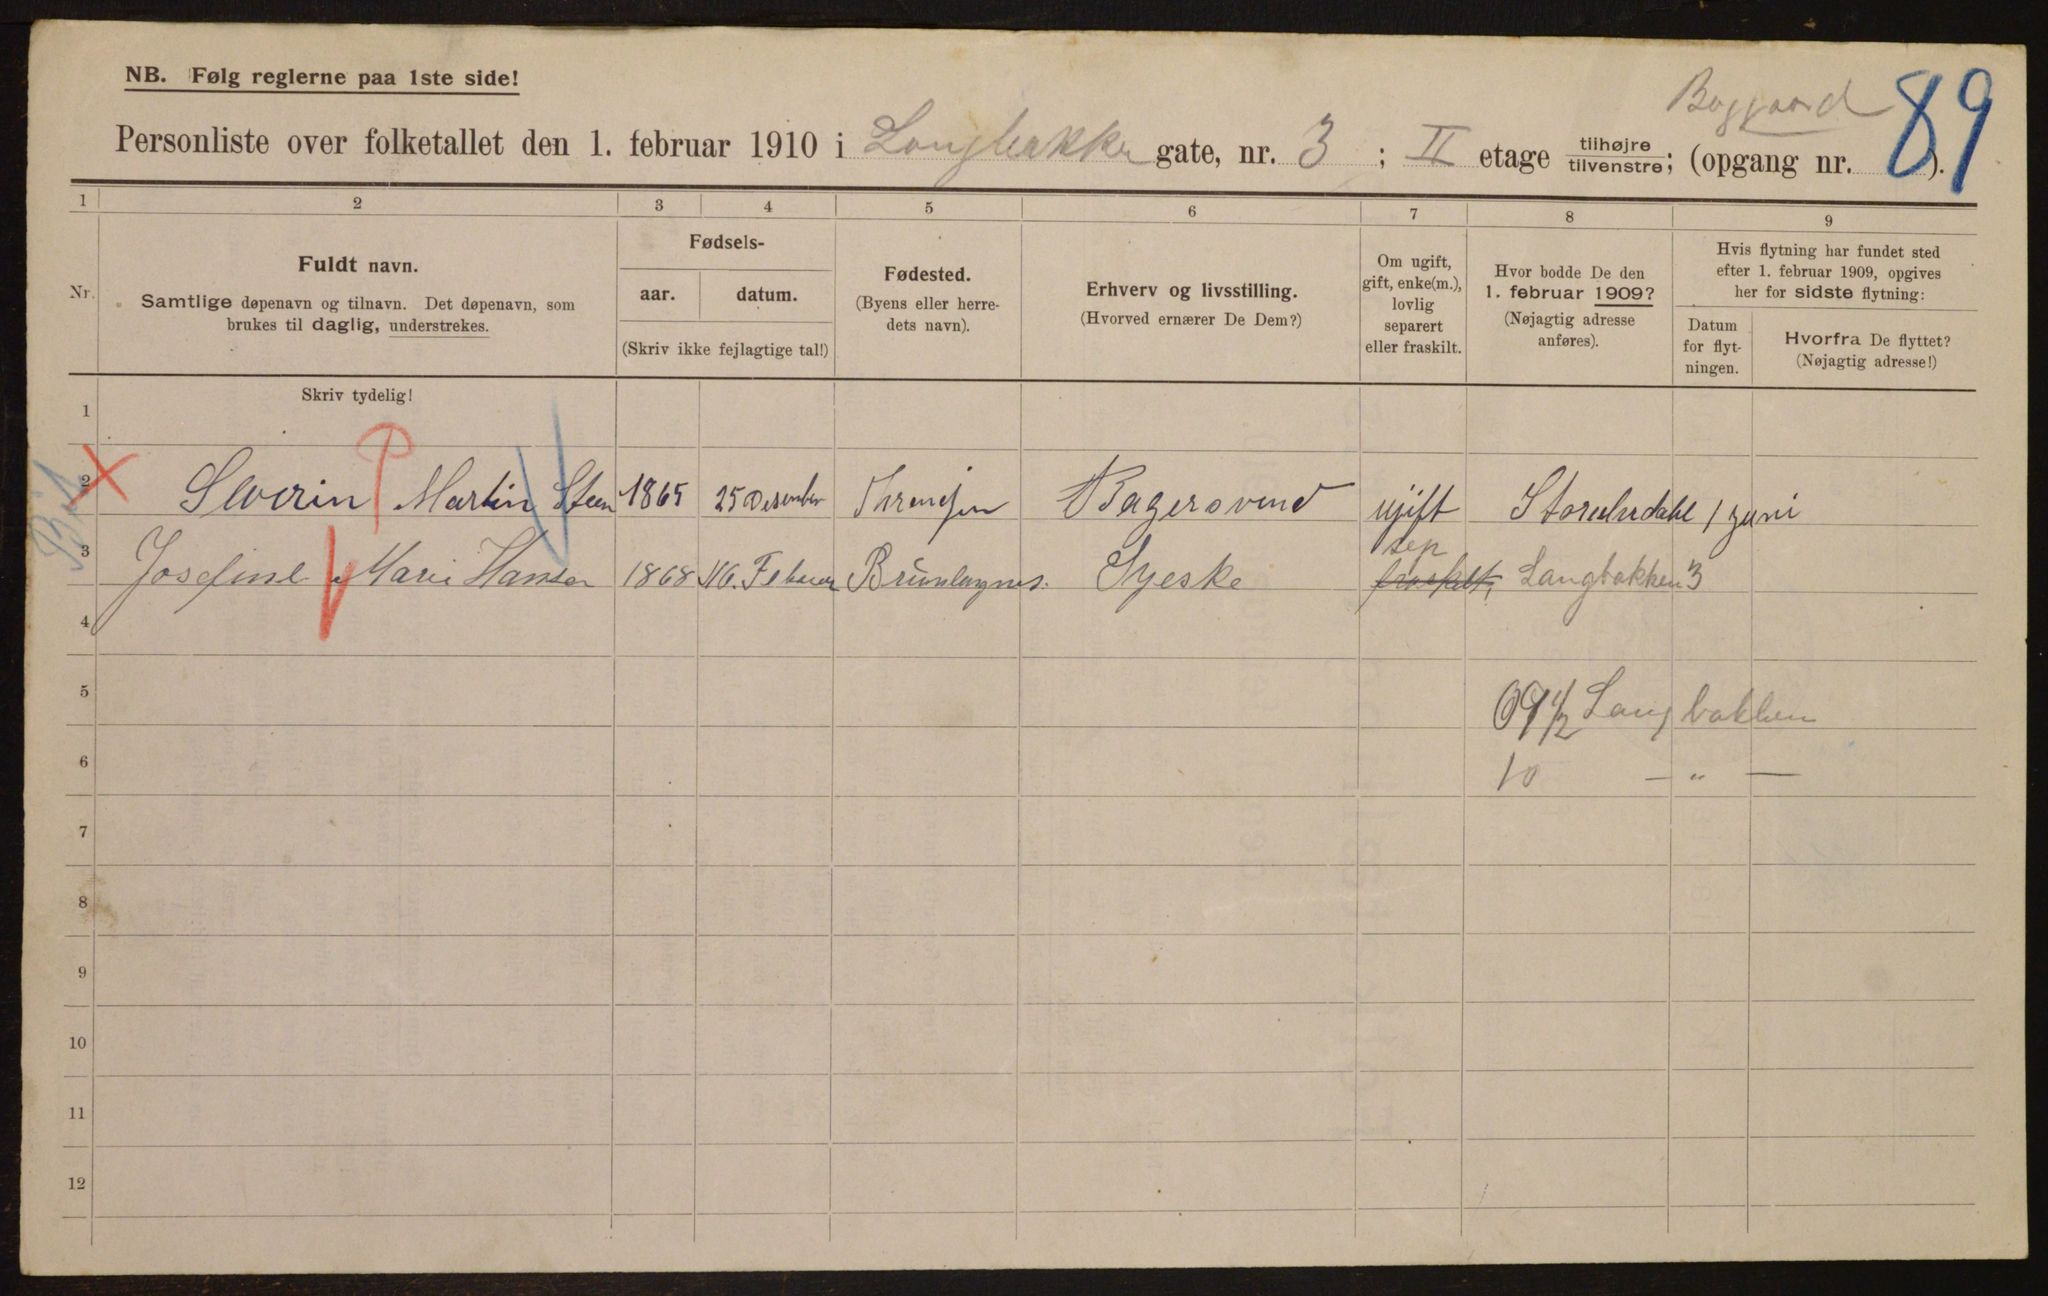 NB. Følg reglerne paa 1ste side!
Baggaard
89
Personliste over folketallet den 1. februar 1910 i Langbakke gate, nr. 3 ; II etage tilhøjre tilvenstre; (opgang nr. ).
1 2 3 4 5 6 7 8 9
Nr.
Fuldt navn.
Samtlige døpenavn og tilnavn. Det døpenavn, som
brukes til daglig, understrekes.
Fødsels-
aar. datum.
(Skriv ikke fejlagtige tal!)
Fødested.
(Byens eller herre-
dets navn).
Erhverv og livsstilling.
(Hvorved ernærer De Dem?)
Om ugift,
gift, enke(m.),
lovlig
separert
eller fraskilt.
Hvor bodde De den
1. februar 1909?
(Nøjagtig adresse
anføres).
Hvis flytning har fundet sted
efter 1. februar 1909, opgives
her for sidste flytning:
Datum
for flyt-
ningen.
Hvorfra De flyttet?
(Nøjagtig adresse!)
Skriv tydelig!
1
2 Severin Martin Steen 1865 25 Desember Bagersvend ugift 1 juni
sep
3 Josefine Marie Hansen 1868 16. Februar Brunlagnes. Syeske fraskilt, Langbakken 3
4
5 09 1/2 Langbakken
6 10 — " —
7
8
9
10
11
12